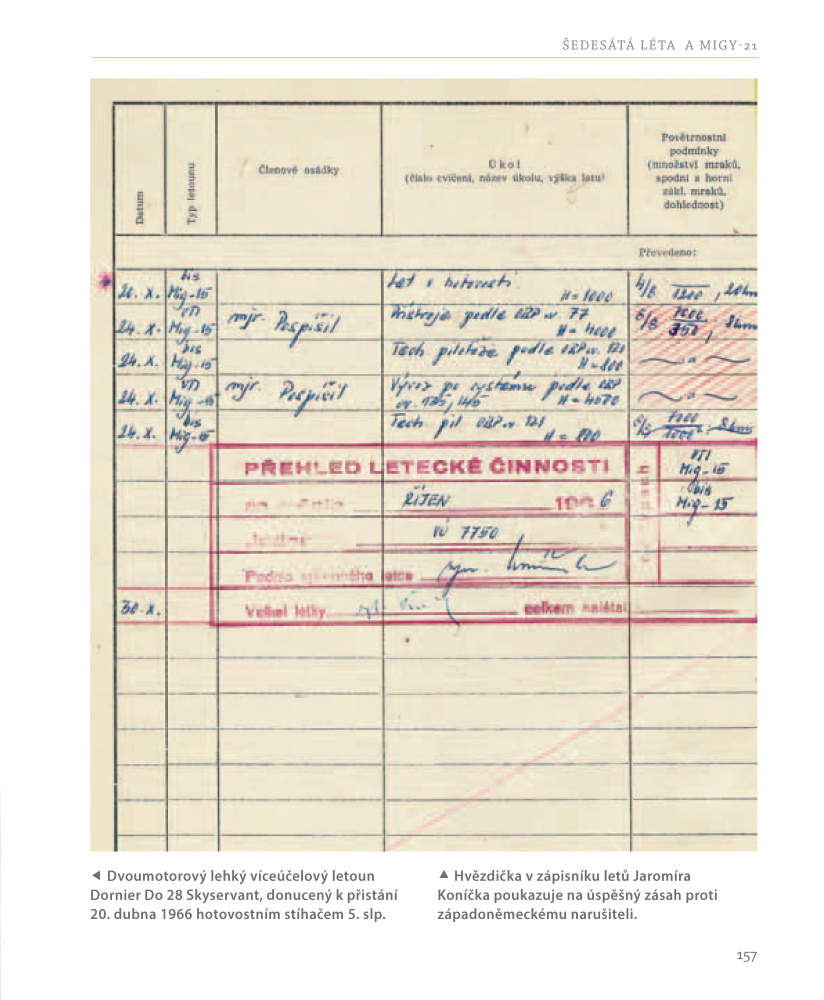 ŠEDESÁTÁ LÉTA A MIGY-21
Datum
Typ letounu
Členové osádky
Úkol
(číslo cvičení, název úkolu, výška letu)
Povětrnostní
podmínky
(množství mraků,
spodní a horní
zákl. mraků,
dohlednost)
Převedeno:
20. X. bis Mig-15 Let v hotovosti H=1000 4/8 1200, 20km
24. X. UTI Mig-15 mjr. Pospíšil Přístroje podle H=4000 6/8 7000 350, 8km
24. X. bis Mig-15 Tech pilotáže podle 121 H=800
24. X. UTI Mig-15 mjr. Pospíšil po systému podle H=4070
24. X. bis Mig-15 Tech pil. 121 H=800 7000 1000
PŘEHLED LETECKÉ ČINNOSTI
ŘÍJEN 1966
VÚ 7750
UTI
Mig-15
bis
Mig-15
Podpis
30. X.
Velitel letky celkem nalétal
◄ Dvoumotorový lehký víceúčelový letoun
Dornier Do 28 Skyservant, donucený k přistání
20. dubna 1966 hotovostním stíhačem 5. slp.
▲ Hvězdička v zápisníku letů Jaromíra
Koníčka poukazuje na úspěšný zásah proti
západoněmeckému narušiteli.
157